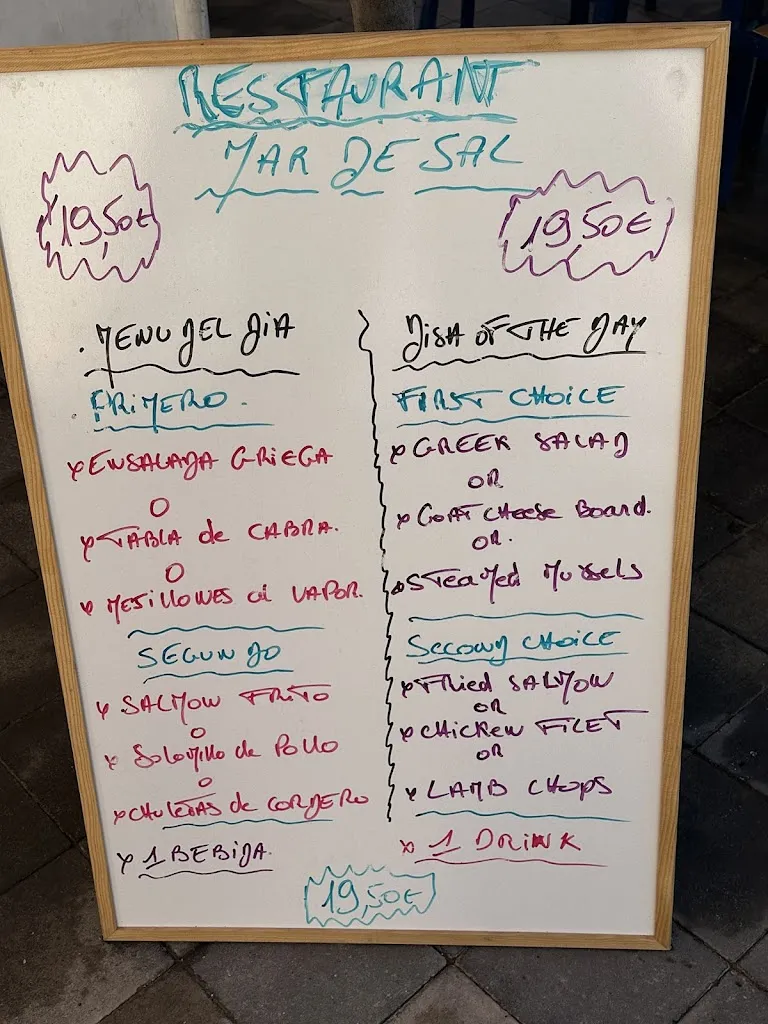 RESTAURANT
MAR DE SAL
19,50€
19,50€
. MENU DEL DIA
PRIMERO.
x ENSALADA GRIEGA
O
x TABLA de CABRA.
O
x MESILLONES al VAPOR.
SEGUNDO
x SALMON FRITO
O
x Solomillo de Pollo
O
x CHULETAS de CORDERO
x 1 BEBIDA.
DISH OF THE DAY
FIRST CHOICE
x GREEK SALAD
OR
x GOAT CHeese BOARD.
OR.
x STEAMED MUSSELS
SECOND CHOICE
x FRIED SALMON
OR
x CHICKEN FILET
OR
x LAMB CHOPS
x 1 DRINK
19,50€